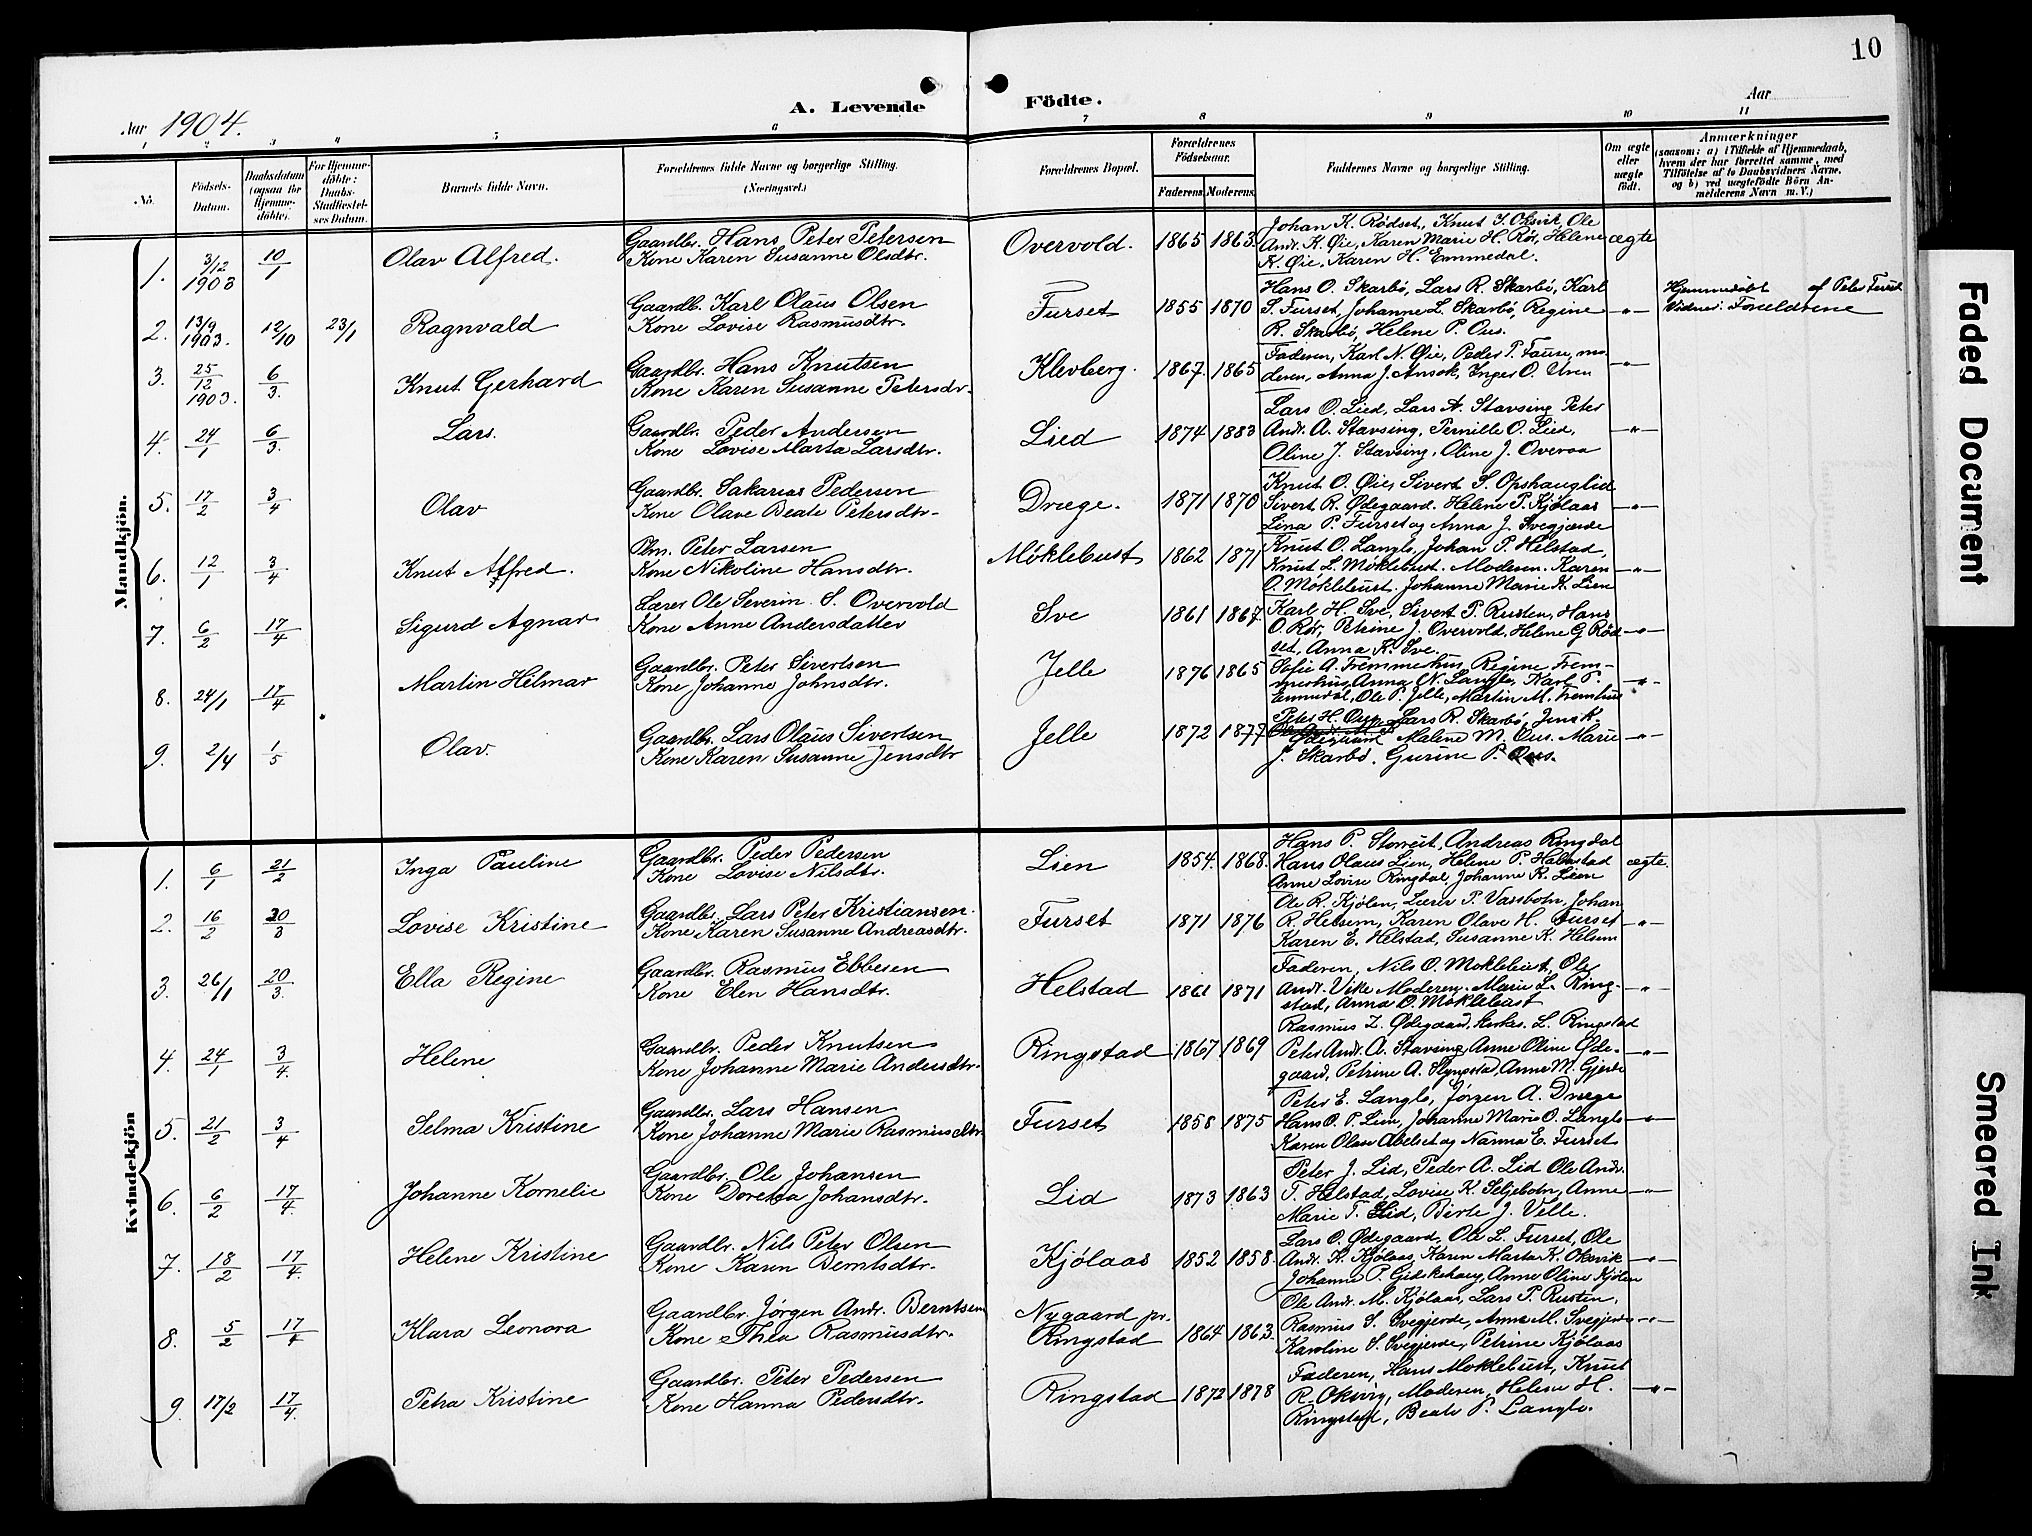 10
A. Levende Födte.
Aar 1904.
Aar
1 2 3 4 5 6 7 8 9 10 11
No.
Födsels-Datum.
Daabsdatum (ogsaa for Hjemme-döbte).
For Hjemme-döbte: Daabs-Stadfæstel-ses Datum.
Barnets fulde Navn.
Forældrenes fulde Navne og borgerlige Stilling. (Næringsvei.)
Forældrenes Bopæl.
Forældrenes Födselsaar.
Faderens. Moderens.
Faddernes Navne og borgerlige Stilling.
Om ægte eller uægte födt.
Anmærkninger
(saasom: a) i Tilfælde af Hjemmedaab, hvem der har forrettet samme, med Tilföielse af to Daabsvidners Navne, og b) ved uægtefödte Börn An-melderens Navn m. V.)
Mandkjön.
1. 3/12 1903 10/1 Olav Alfred. Gaardbr. Hans Peter Petersen
Kone Karen Susanne Olsdtr. Overvold. 1865 1863. Johan K. Rødset, Knut J. Oksvik, Ole
Andr. K. Øie, Karen Marie H. Rør, Helene ægte
K. Øie, Karen H. Emmedal.
2. 13/9 1903. 12/10 23/1 Ragnvald Gaardb. Karl Olaus Olsen
Kone Lovise Rasmusdtr. Furset 1855 1870 Hans O. Skarbø, Lars R. Skarbø, Karl
S. Furset, Johanne L. Skarbø, Regine -"-
R. Skarbø, Helene P. Ous.
Hjemmedøbt af Peter Furset
Vidner: Forældrene
3. 25/12 1903. 6/3. Knut Gerhard Gaardbr. Hans Knutsen
Kone Karen Susanne Petersdtr. Klevberg. 1867. 1865 Faderen, Karl N. Øie, Peder P. Fause, mo-
deren, Anna J. Ansok, Inger O. Uren -"-
4. 24/1 6/3. Lars. Gaardbr. Peder Andersen
Kone Lovise Marta Larsdtr. Lied 1874 1883 Lars O. Lied, Lars A. Stavsing, Peter
Andr. A. Stavsing, Pernille O. Lied, -"-
Oline J. Stavsing, Oline J. Overaa
5. 17/2 3/4 Olav Gaardbr. Sakarias Pedersen
Kone Olave Beate Petersdtr. Dræge. 1871 1870 Knut O. Øie, Sivert S. Opshauglid
Sivert R. Ødegaard. Helene P. Kjølaas -"-
Lina P. Furset og Anna J. Svegjerde
6. 12/1 3/4 Knut Alfred. Peter Larsen
Kone Nikoline Hansdtr. Møklebust 1862 1871 Knut O. Langlo, Johan P. Helstad,
Knut L. Møklebust. Moderen. Karen -"-
O. Møklebust. Johanne Marie K. Lien
7. 6/2 17/4 Sigurd Agnar Lærer Ole Severin S. Overvold
Kone Anne Andersdatter Sve 1861 1867. Karl H. Sve, Sivert P. Rusten, Hans
O. Rør, Petrine J. Overvold, Helene G. Rød- -"-
set, Anna K. Sve.
8. 24/1 17/4 Martin Helmar Gaardbr. Peter Sivertsen
Kone Johanne Johnsdtr. Jelle 1876 1865 Sofie A. Fremmerhus, Regine Frem-
merhus, Anna N. Langlo, Karl P. -"-
Emmedal, Ole P. Jelle, Martin M. Fremhus
9. 2/4 1/5 Olav. Gaardbr. Lars Olaus Sivertsen
Kone Karen Susanne Jensdtr Jelle 1872 1877 Peter H. Ous, Lars R. Skarbø, Jens K.
Ødegaard Malene M. Ous. Marie -"-
J. Skarbø. Gurine P. Ous.
Kvindekjön
1. 6/1 21/2 Inga Pauline Gaardbr. Peder Pedersen
Kone Lovise Nilsdtr. Lien 1854. 1868. Hans P. Storeit, Andreas Ringdal
Hans Olaus Lien, Helene P. Halmstad ægte.
Anne Lovise Ringdal, Johanne R. Lien
2. 16/2 20/3 Lovise Kristine Gaardbr. Lars Peter Kristiansen.
Kone Karen Susanne Andreasdtr. Furset 1871 1876 Ole R. Kjølen, Lærer P. Vassbotn, Johan
R. Helsem, Karen Olave H. Furset -"-
Karen E. Helstad, Susanne K. Helsem
3. 26/1 20/3. Ella Regine Gaardbr. Rasmus Ebbesen
Kone Elen Hansdtr. Helstad 1861 1871 Faderen, Nils O. Møklebust, Ole
Andr. Vike Moderen. Marie L. Ring- -"-
stad, Anna O. Møklebust
4. 24/1 3/4. Helene Gaardbr. Peder Knutsen
Kone Johanne Marie Andersdtr. Ringstad 1867. 1869 Rasmus L. Ødegaard, L. Ringstad
Peter Andr. A. Stavsing, Anne Oline Øde- -"-
gaard, Petrine A. Slyngstad, Anne M. Gjerde
5. 21/2 3/4 Selma Kristine Gaardbr. Lars Hansen
Kone Johanne Marie Rasmusdtr Furset 1858 1875 Peter E. Langlo, Jørgen A. Dræge
Hans O. P. Lien, Johanne Marie O. Langlo -"-
Karen Olave Abelset og Nanna E. Furset
6. 6/2 17/4. Johanne Kornelie Gaardbr. Ole Johansen
Kone Doretea Johansdtr. Lid 1873 1863 Peter J. Lid, Peder A. Lid Ole Andr.
T. Helstad, Lovise K. Seljebotn, Anne -"-
Marie T. Lid, Birte J. Velle.
7. 18/2 17/4. Helene Kristine Gaardbr. Nils Peter Olsen
Kone Karen Berntsdtr. Kjølaas 1852 1858. Lars O. Ødegaard, Ole L. Furset, Ole
Andr. K. Kjølaas, Karen Marta K. Oksvik -"-
Johanne P. Gidskehaug, Anne Oline Kjølen
8. 5/2 17/4 Klara Leonora Gaardbr. Jørgen Andr. Berntsen
Kone Thea Rasmusdtr. Nygaard pr.
Ringstad 1864 1863. Ole Andr. M. Kjølaas, Lars P. Rusten,
Rasmus S. Svegjerde, Anna M. Svegjerde -"-
Karoline S. Svegjerde, Petrine Kjølaas
9. 17/2 17/4. Petra Kristine Gaardbr. Peter Pedersen
Kone Hanna Pedersdtr. Ringstad 1872 1878 Faderen, Hans Moklebust, Knut
R. Oksvig, Moderen, Helene H. -"-
Ringstad, Beate P. Langlo.
Faded Document
Smeared Ink